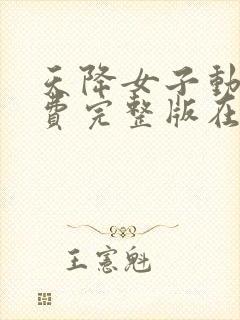 天降女子動
費完整版在
王憲魁